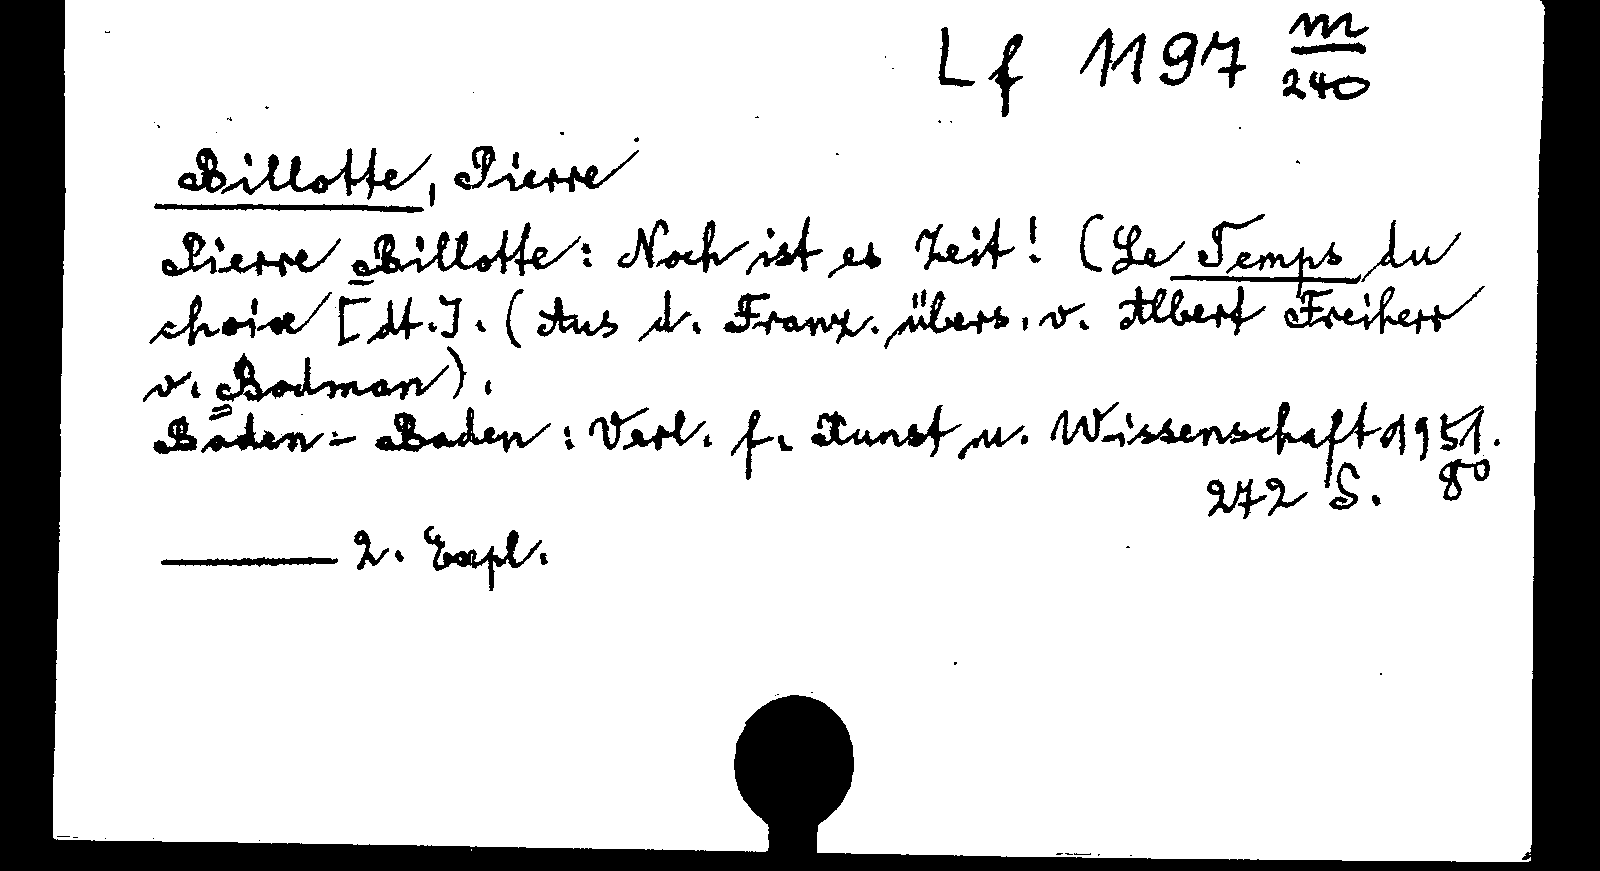 Lf 1197 m/240
Billotte, Pierre
Pierre Billotte: Noch ist es Zeit! (Le Temps du
choix [dt.]. (Aus d. Franz. übers. v. Albert Freiherr
v. Bodman).
Baden-Baden: Verl. f. Kunst u. Wissenschaft 1951.
272 S. 8°
——— 2. Expl.